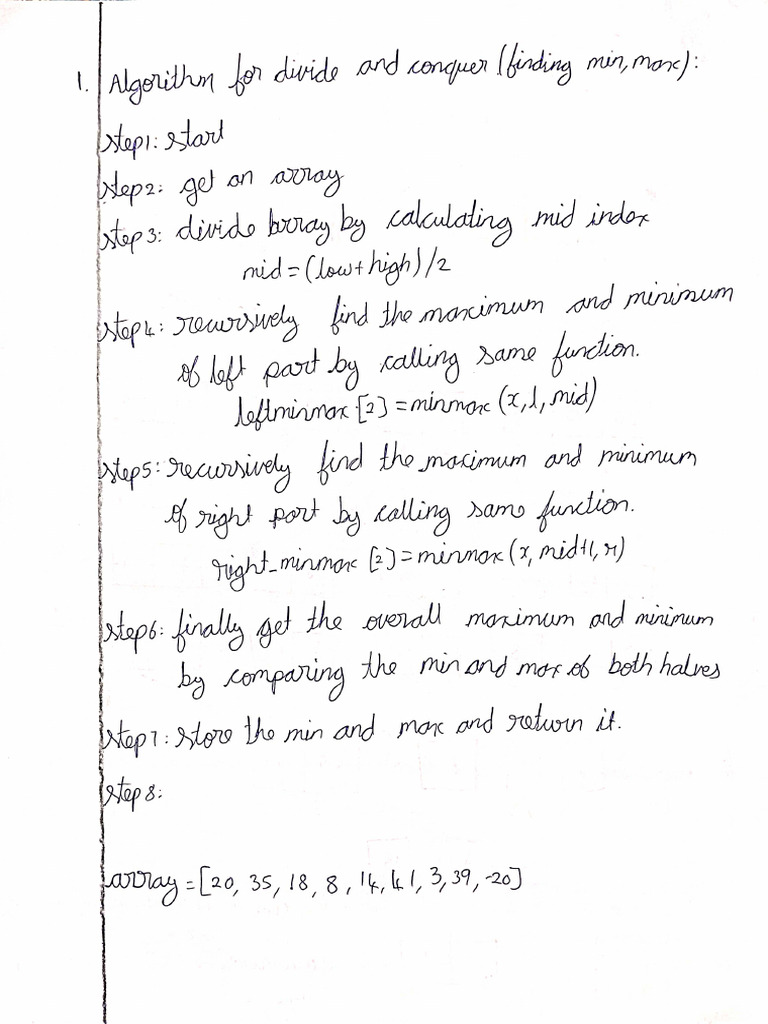 1. Algorithm for divide and conquer (finding min, max):
step1: start
step2: get an array
step3: divide array by calculating mid index
mid = (low + high) / 2
step4: recursively find the maximum and minimum
of left part by calling same function.
leftminmax [2] = minmax (x, l, mid)
step5: recursively find the maximum and minimum
of right part by calling same function.
right_minmax [2] = minmax (x, mid+1, r)
step6: finally get the overall maximum and minimum
by comparing the min and max of both halves
step7: store the min and max and return it.
step 8:
array = [20, 35, 18, 8, 14, 41, 3, 39, -20]